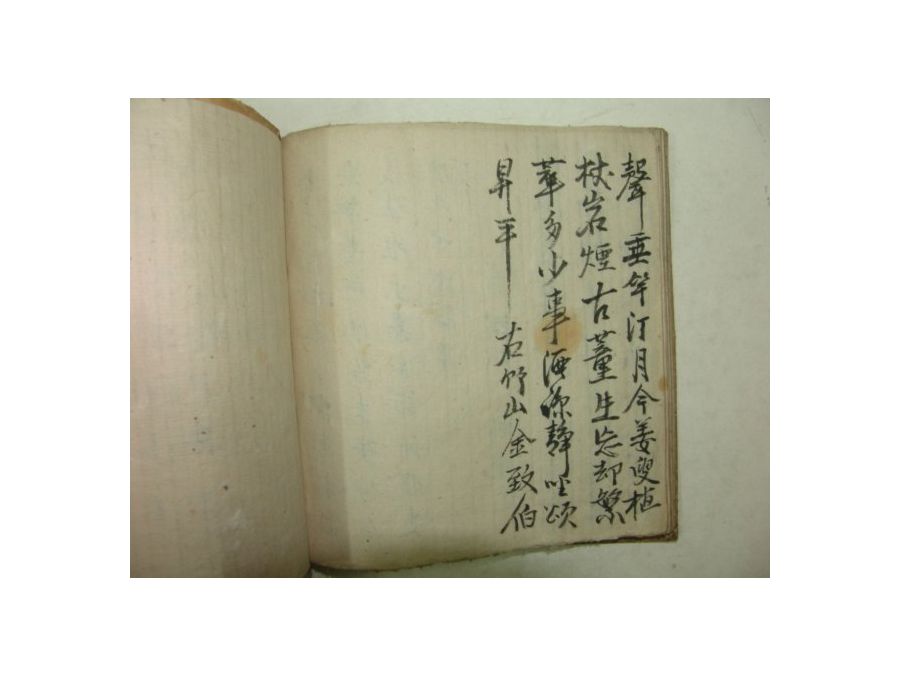 聲垂竿汀月今姜叟植
杖岩煙古董生忘却繁
華多少事酒源靜坐頌
昇平
右竹山金致伯